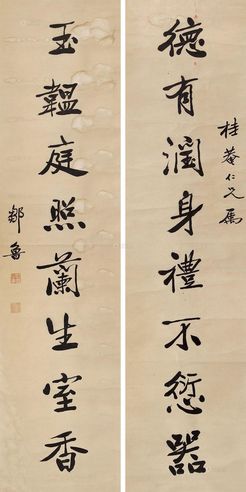 桂菴仁兄屬
德有潤身禮不愆器
玉韞庭照蘭生室香
鄒魯